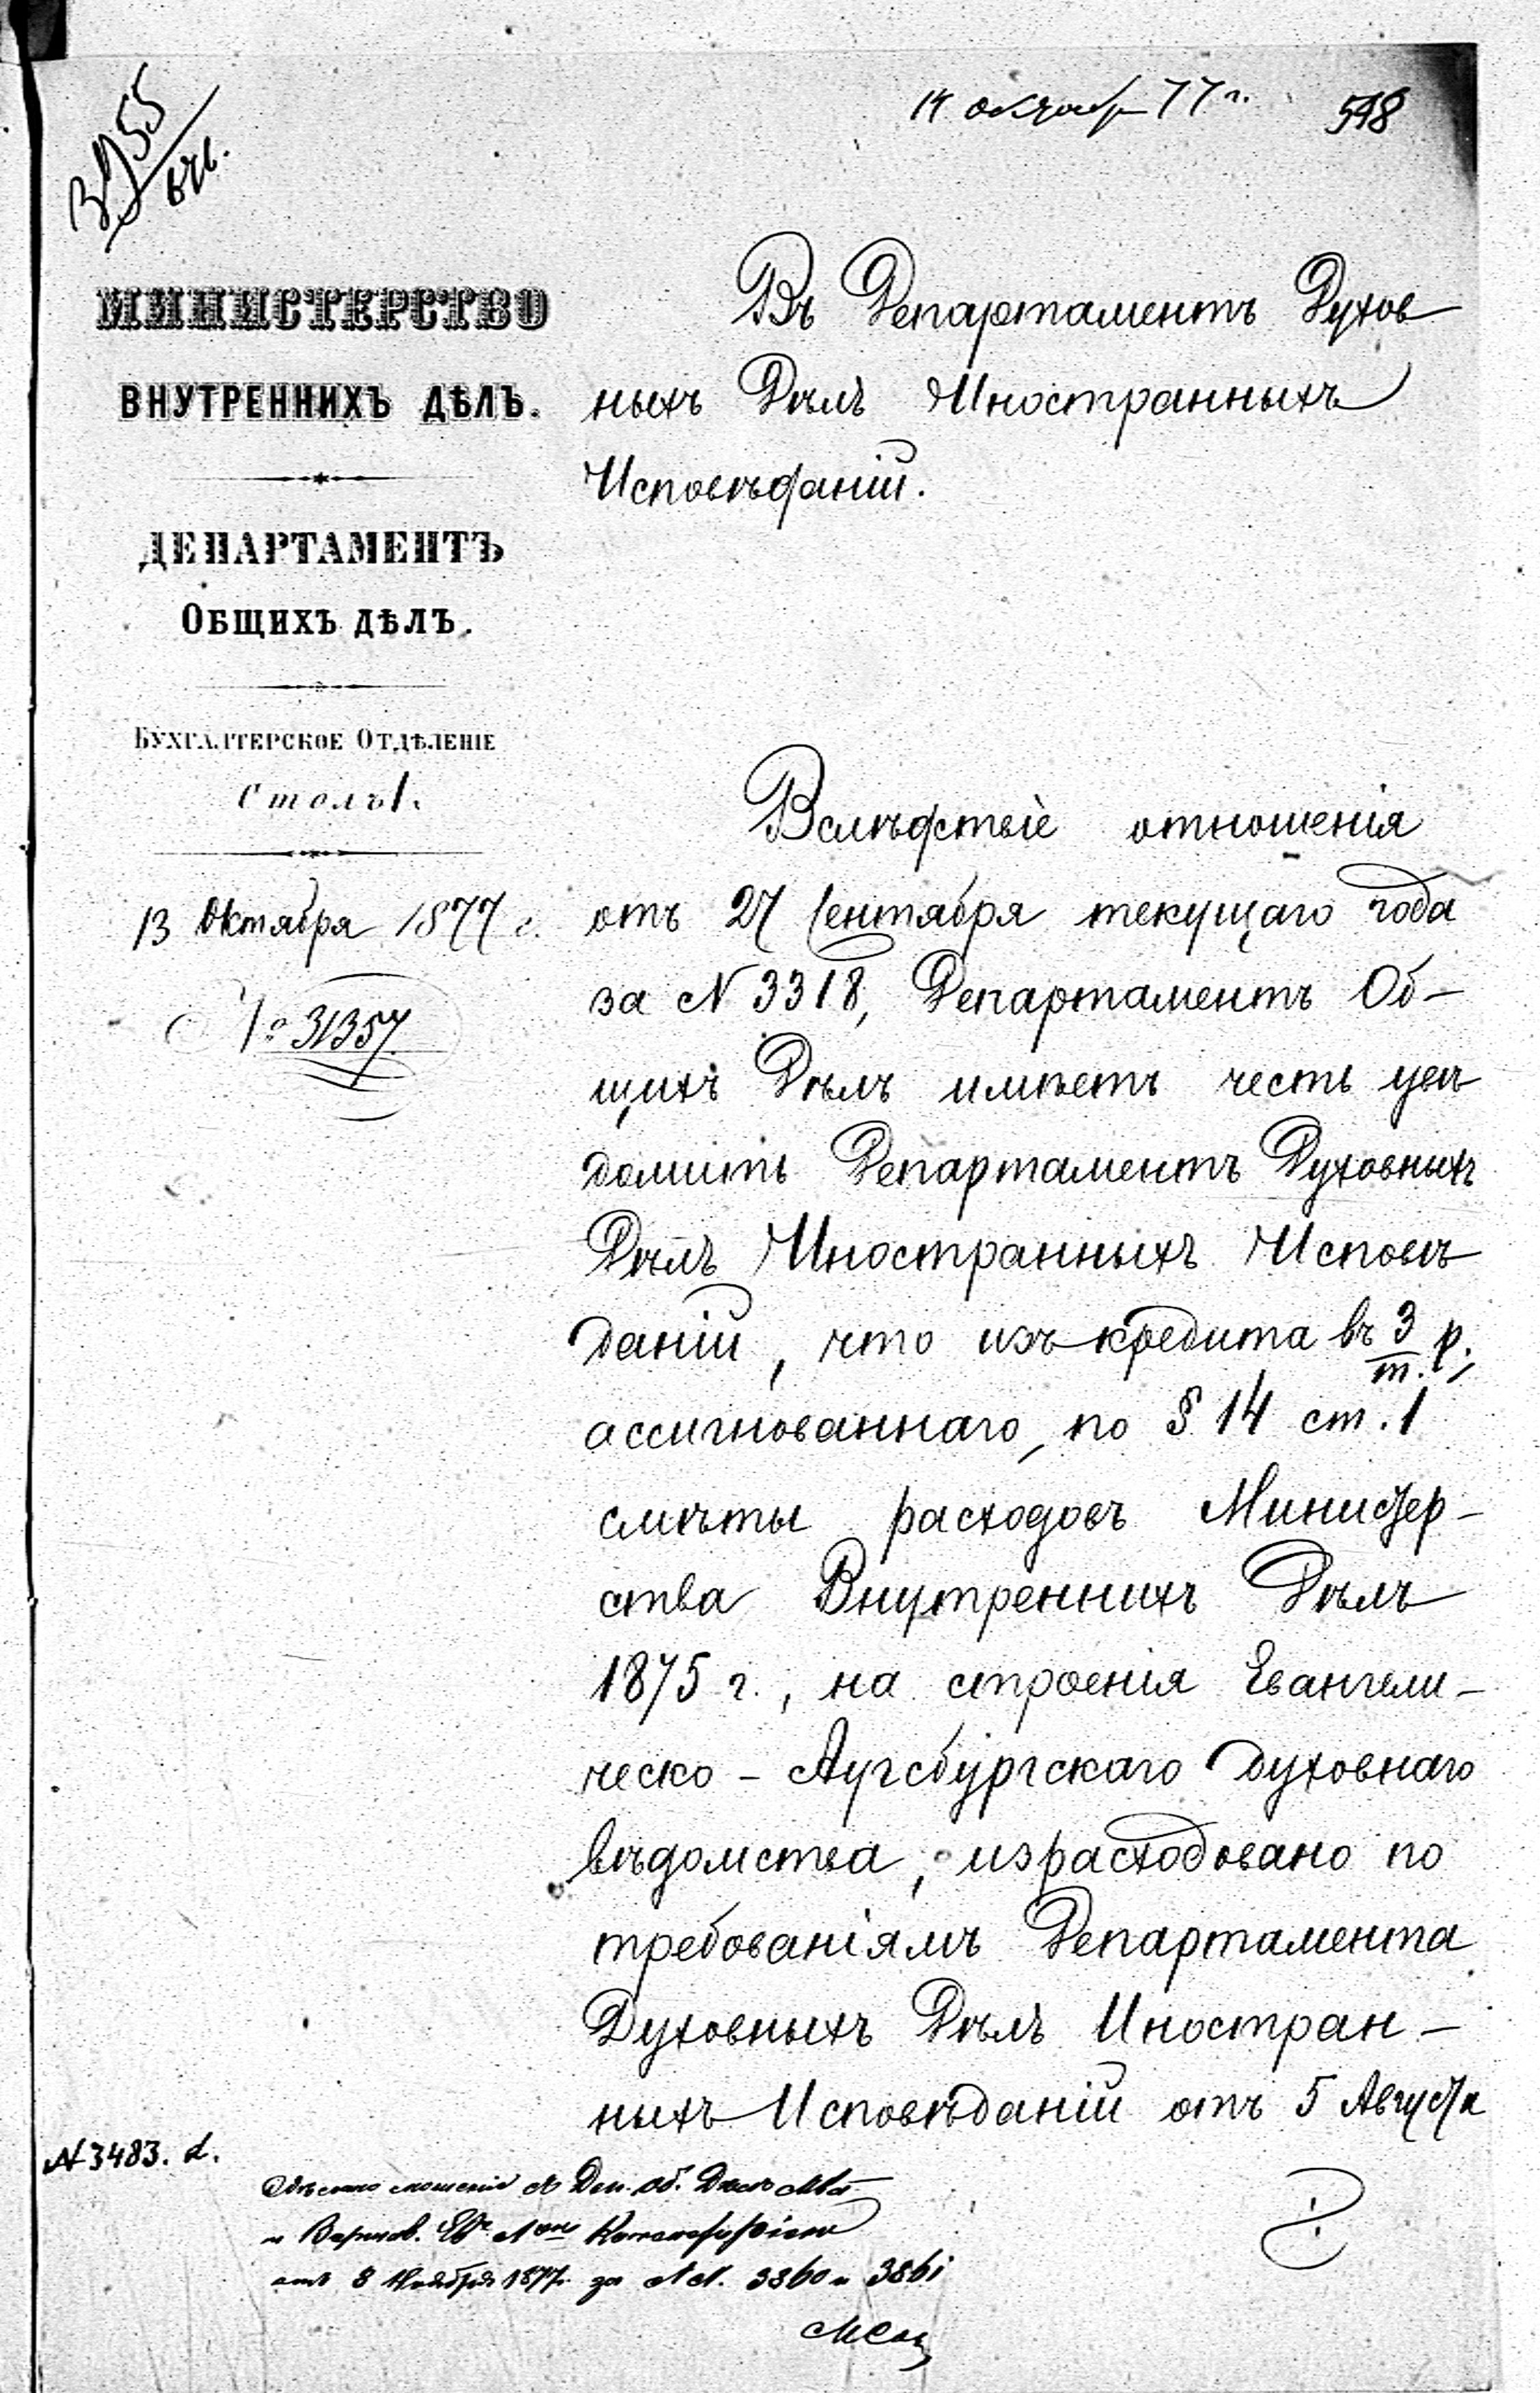 14 Октябр 77 г.
598
МИНИСТЕРСТВО
ВНУТРЕННИХЪ ДѢЛЪ.
ДЕПАРТАМЕНТЪ
ОБЩИХЪ ДѢЛЪ.
БУХГАЛТЕРСКОЕ ОТДѢЛЕНІЕ
Столъ 1.
13 Октября 1877 г.
№ 31357.
Въ Департаментъ Духов
ныхъ Дѣлъ Иностранныхъ
Исповѣданій.
Вслѣдствіе отношенія
отъ 27 Сентября текущаго года
за № 3318, Департаментъ Об-
щихъ Дѣлъ имѣетъ честь увѣ
домить Департаментъ Духовныхъ
Дѣлъ Иностранныхъ Исповѣ
даній, что изъ кредита въ 3 т. р.,
ассигнованнаго, по § 14 ст. 1
смѣты расходовъ Министер-
ства Внутреннихъ Дѣлъ
1875 г., на строенія Евангели-
ческо-Аугсбургскаго духовнаго
вѣдомства, израсходовано по
требованіямъ Департамента
Духовныхъ Дѣлъ Иностран-
ныхъ Исповѣданій отъ 5 Августа
№ 3483. d.
сношеніе съ Деп. Об. Дѣлъ
и Варшав.
отъ 8 Ноября 1877 за №№. 3860 и 3861